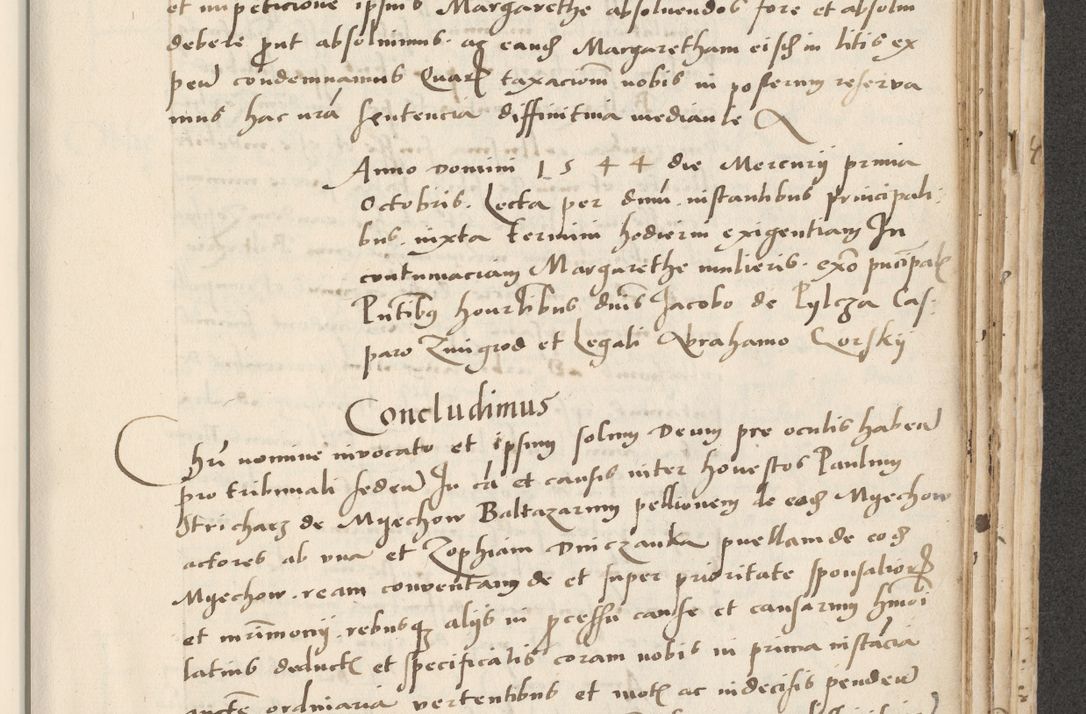 et impeticione ipsius Margarethe absoluendos fore et absolui
debere prout absoluimus. ac eandem Margaretham eisdem in litis ex
pen condemnamus Quarum taxacionem nobis in posterum reserva
mus hac nrã sentencia diffinitiva mediante
Anno Domini 1544 die Mercurij prima
Octobris. Lecta per dnm. instantibus principali
bus. iuxta termini hodierni exigentiam In
contumaciam Margarethe mulieris. exõ principal
Pntibus honorabilibus dnis Jacobo de Pylcza Cas
paro Zmigrod et Legali Abrahamo Gorskij
Concludimus
Chri nomine invocato et ipsum solum Deum pre oculis haben
pro tribunali seden In ca et causis inter honestos Paulum
Stricharz de Myechow Baltazarum pellionem de eodem Myechow
actores ab una et Zophiam Dniczanka puellam de eodem
Myechow. ream conventam de et super prioritate sponsaliorum
et mrimonij. rebusque alijs in processu cause et causarum hmõi
latius deduct et specificatis coram nobis in prima instãcia
aucte ordinaria vertentibus et mot ac indecisis penden